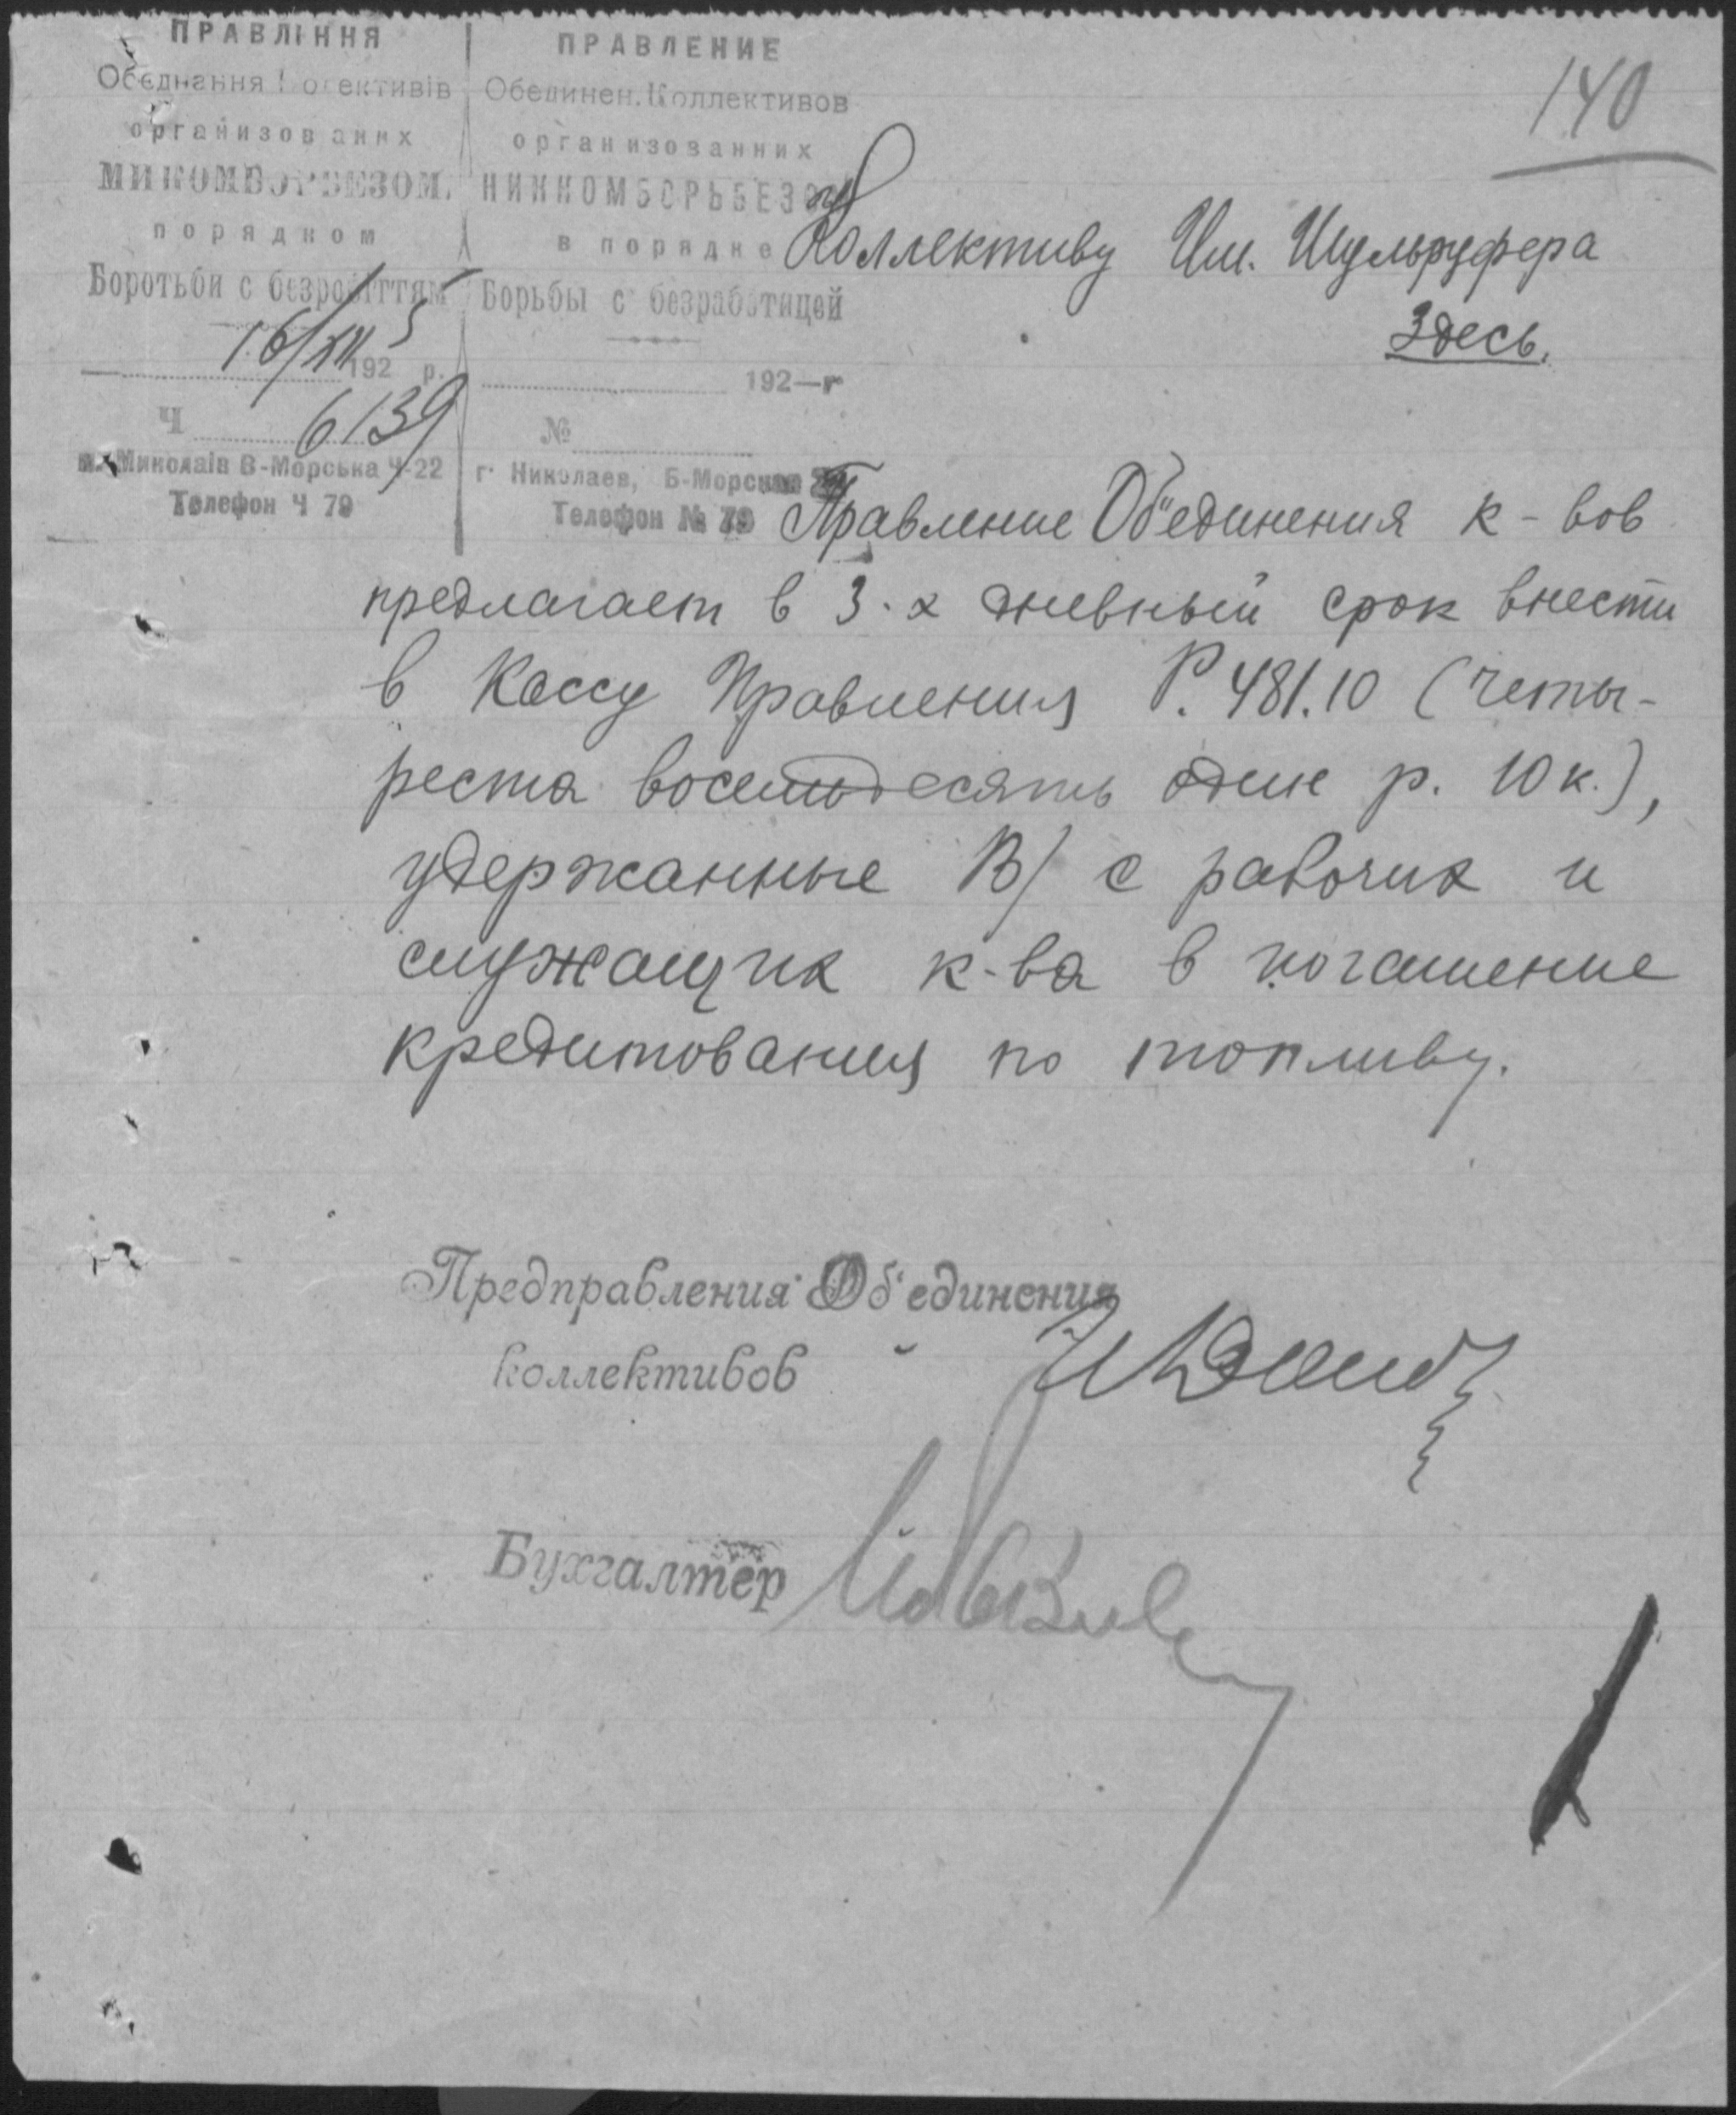 140
ПРАВЛІННЯ
Обєднання Колективів
організованих
МИКОМБОРБЕЗОМ.
порядком
Боротьби с безробіттям
16/XII 1925 р.
Ч 6139
м. Миколаїв В-Морська Ч-22
Телефон Ч 79
ПРАВЛЕНИЕ
Обединен. Коллективов
организованних
НИККОМБОРЬБЕЗОМ
в порядке
Борьбы с безработицей
192—г
№
г. Николаев, Б-Морская 22
Телефон № 79
Коллективу Им. Шульруфера
Здесь.
Правление Об"единения к-вов
предлагает в 3-х дневный срок внести
в Кассу Правления Р. 481.10 (четы-
реста восемьдесять один р. 10 к.),
удержанные В/ с рабочих и
служащих к-ва в погашение
кредитования по топливу.
Предправления Об'единения
коллективов
Бухгалтер